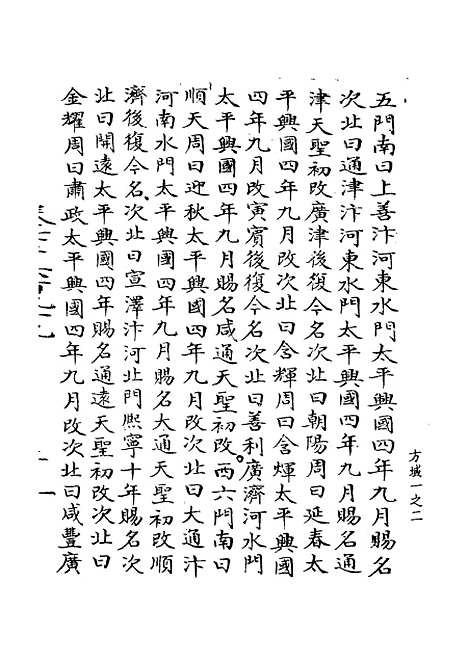 五門南曰上善汴河東水門太平興國四年九月賜名
次北曰通津汴河東水門太平興國四年九月賜名通
津天聖初改廣津後復今名次北曰朝陽周曰延春太
平興國四年九月改次北曰含輝周曰含煇太平興國
四年九月改寅賓後復今名次北曰善利廣濟河水門
太平興國四年九月賜名咸通天聖初改西六門南曰
順天周曰迎秋太平興國四年九月改次北曰大通汴
河南水門太平興國四年九月賜名大通天聖初改順
濟後復今名次北曰宣澤汴河北門熈寧十年賜名次
北曰開遠太平興國四年賜名通遠天聖初改次北曰
金耀周曰肅政太平興國四年九月改次北曰咸豐廣
方域一之二